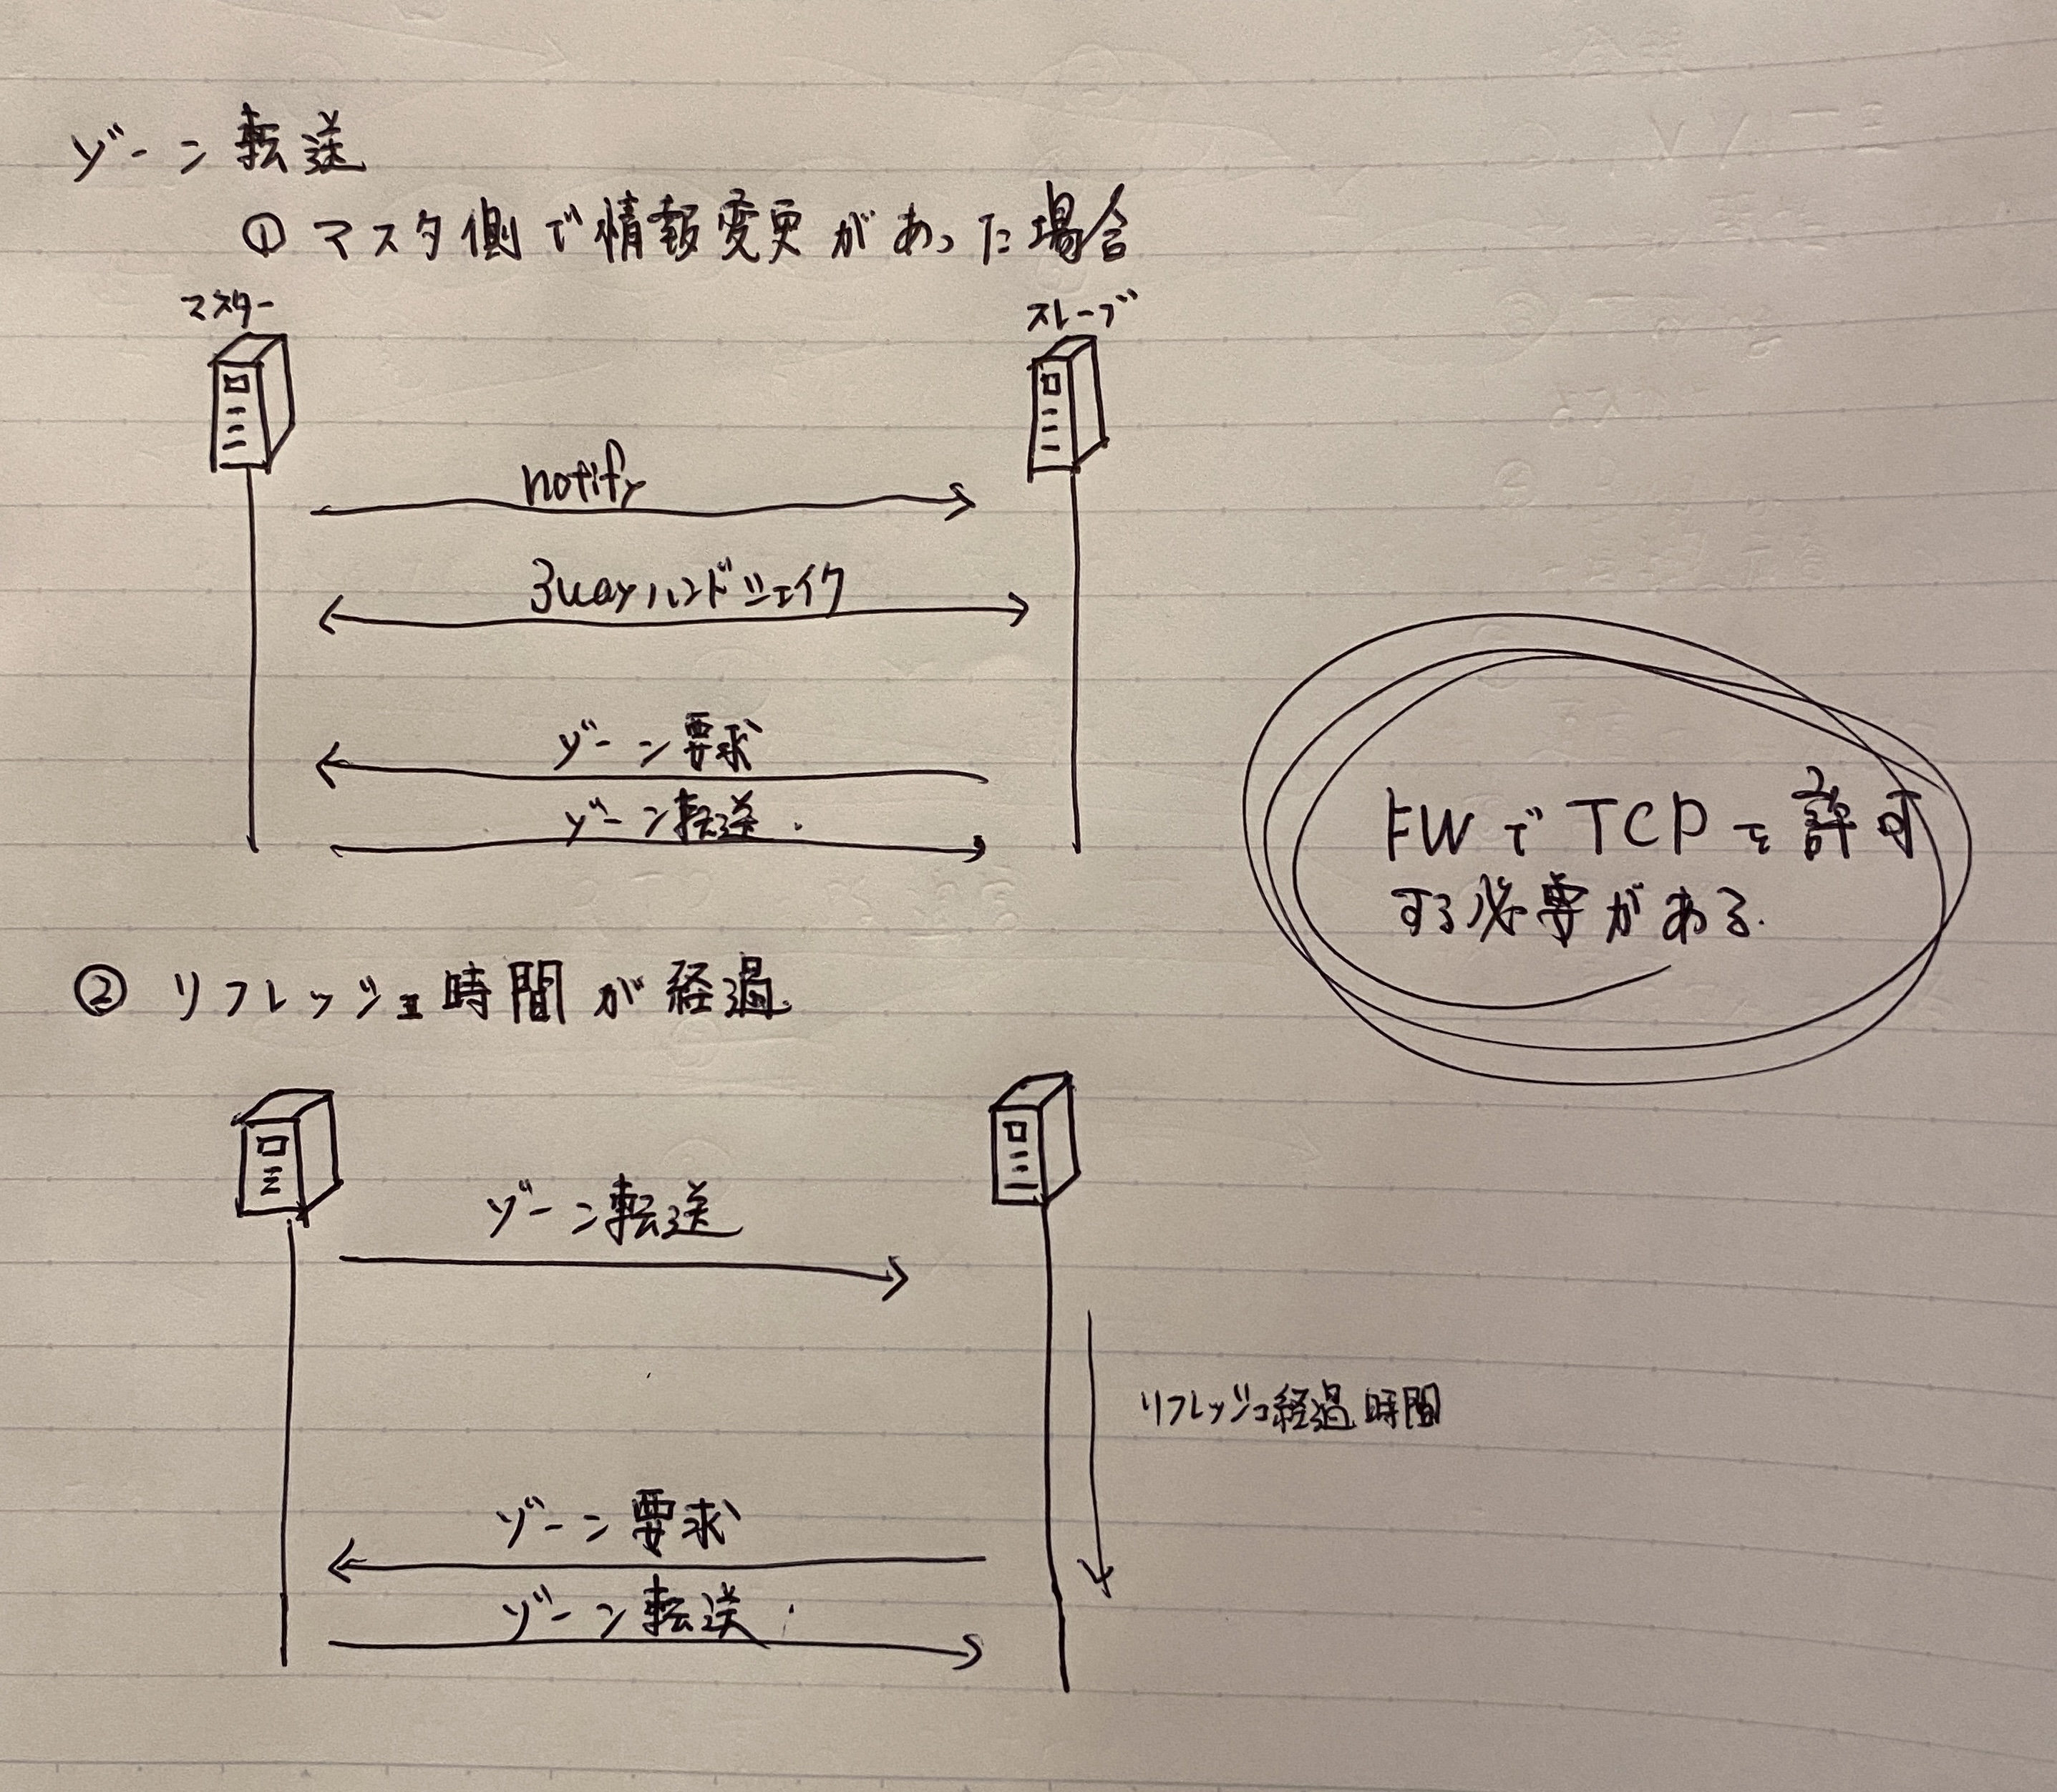 ゾーン転送
① マスタ側で情報変更があった場合
マスター
スレーブ
notify
3wayハンドシェイク
ゾーン要求
ゾーン転送
FWでTCPを許可
する必要がある.
② リフレッシュ時間が経過
ゾーン転送
リフレッシュ経過時間
ゾーン要求
ゾーン転送